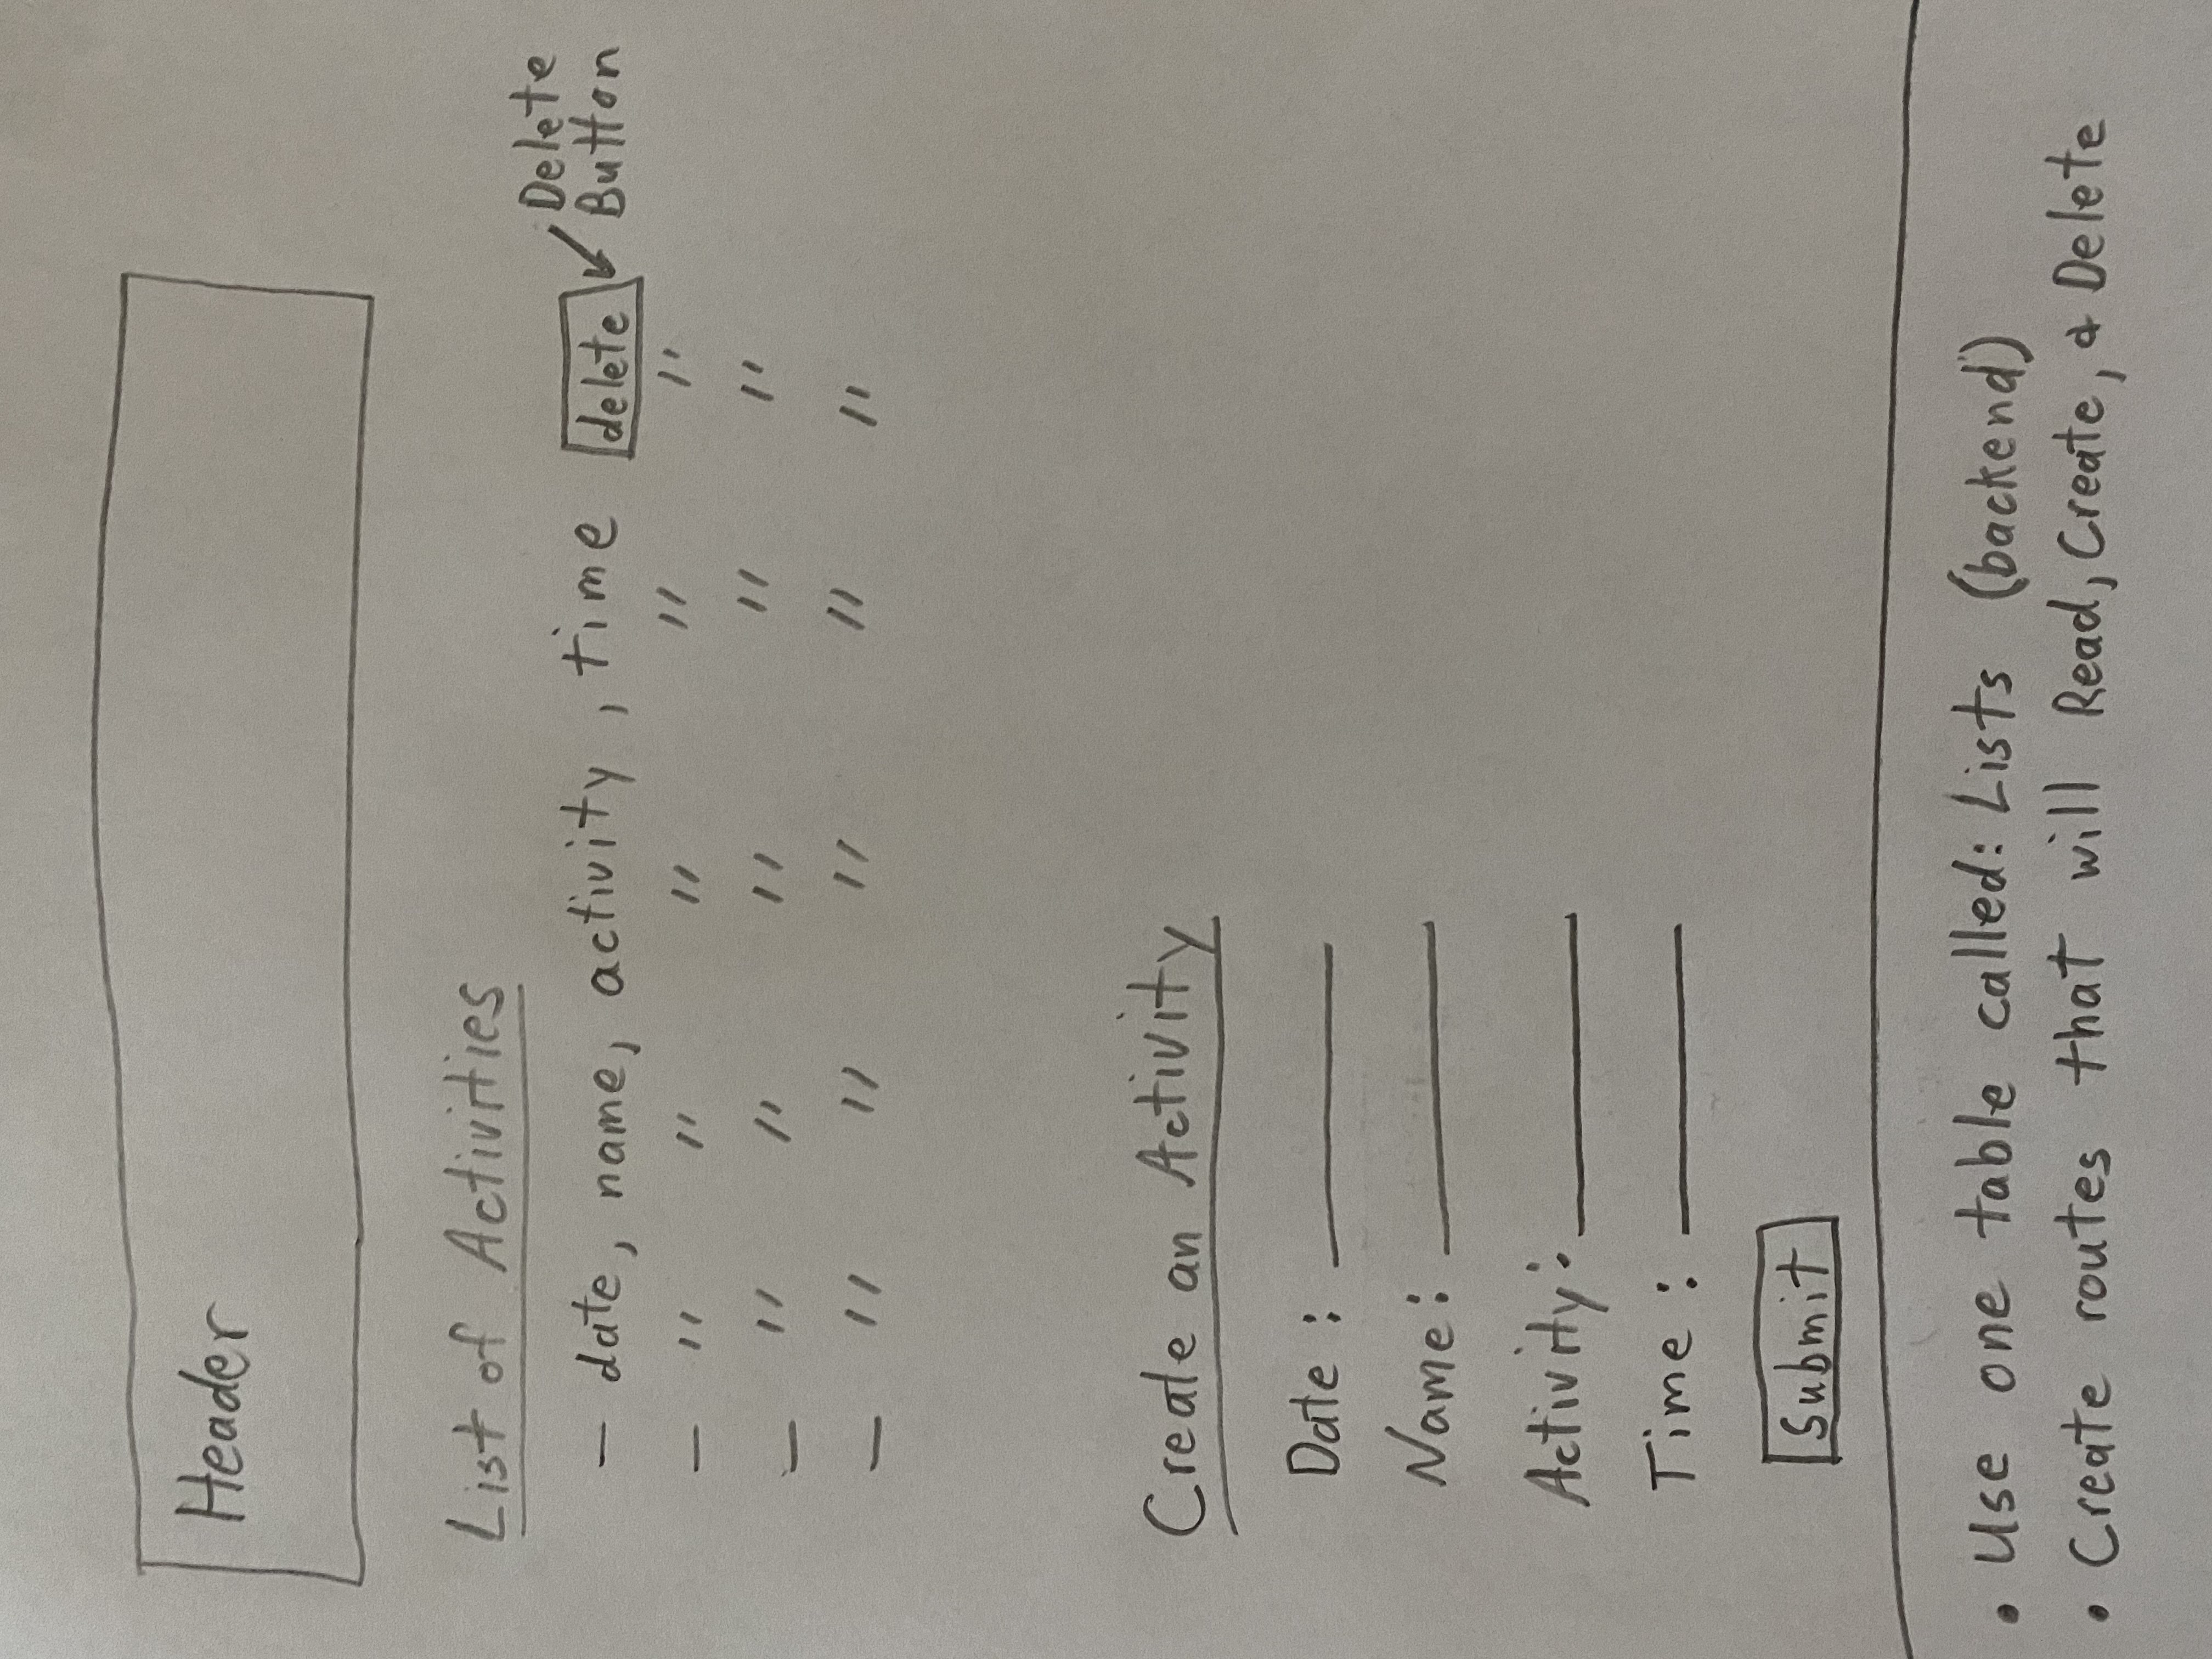 Header
List of Activities
— date, name, activity, time delete
Delete
Button
— " " " " "
— " " " " "
— " " " " "
Create an Activity
Date : ________
Name: ________
Activity: ________
Time : ________
Submit
• Use one table called: Lists (backend)
• Create routes that will Read, Create, & Delete